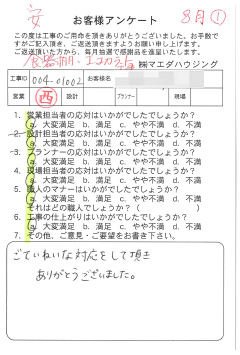 安
お客様アンケート
8月①
この度は工事のご用命を頂きありがとうございました。お手数で
すがご記入頂き、ご返送頂きますようお願い申し上げます。
ご返送頂いた方から、毎月抽選で感謝品を進呈いたします。
㈱マエダハウジング
工事ID 004-01002 お客様名
営業 西 設計 プランナー 現場
1. 営業担当者の応対はいかがでしたでしょうか？
a. 大変満足 b. 満足 c. やや不満 d. 不満
2. 設計担当者の応対はいかがでしたでしょうか？
a. 大変満足 b. 満足 c. やや不満 d. 不満
3. プランナーの応対はいかがでしたでしょうか？
a. 大変満足 b. 満足 c. やや不満 d. 不満
4. 現場担当者の応対はいかがでしたでしょうか？
a. 大変満足 b. 満足 c. やや不満 d. 不満
5. 職人のマナーはいかがでしたでしょうか？
a. 大変満足 b. 満足 c. やや不満 d. 不満
それはどの職人でしょうか？（ ）
6. 工事の仕上がりはいかがでしたでしょうか？
a. 大変満足 b. 満足 c. やや不満 d. 不満
7. その他、ご意見・ご要望をお書き下さい。
ごていねいな対応をして頂き
ありがとうございました。